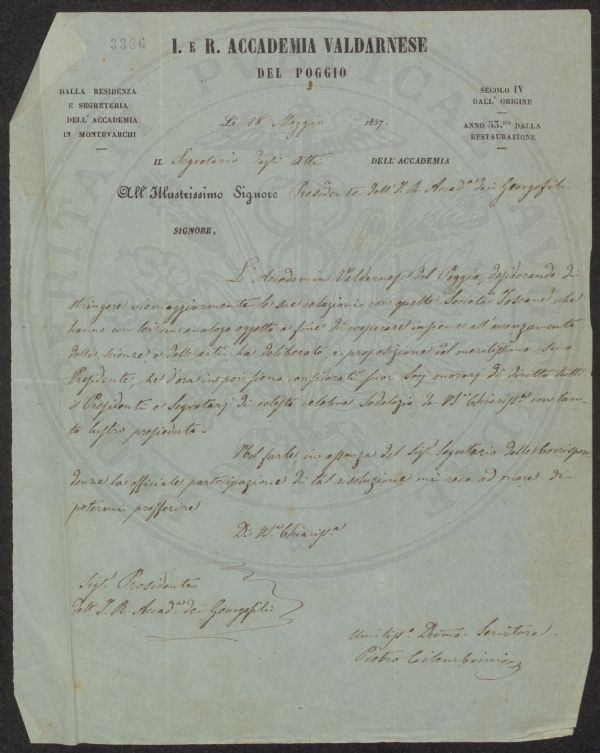 3386
I. E R. ACCADEMIA VALDARNESE
DEL POGGIO
DALLA RESIDENZA
E SEGRETERIA
DELL'ACCADEMIA
IN MONTEVARCHI
SECOLO IV
DALL'ORIGINE
ANNO 33.mo DALLA
RESTAURAZIONE
Li 18 Maggio 1837.
IL Segretario degli Atti DELL'ACCADEMIA
All'Illustrissimo Signore Presidente dell'I. R. Accad.a dei Georgofili
SIGNORE,
L'Accademia Valdarnese del Poggio, desiderando di
stringere viemaggiormente le sue relazioni con quelle Società Toscane che
hanno con lei un analogo oggetto a fine di cooperare insieme all'avanzamento
delle scienze e delle arti, ha deliberato, a proposizione del meritissimo suo
Presidente, che d'ora in poi siano considerati suoi Socj onorarj di diritto tutti
i Presidenti e Segretarj di codesto celebre Sodalizio da VS. Chiariss.a con tan-
to lustro presieduto.
Nel farle, in assenza del Sig.r Segretario delle Corrispon
denze la officiale partecipazione di tal risoluzione mi reco ad onore di
potermi profferire
Di VS. Chiariss.a
Sig.r Presidente
dell'I. R. Accad.a dei Georgofili
Umiliss.o Devmo. Servitore
Pietro